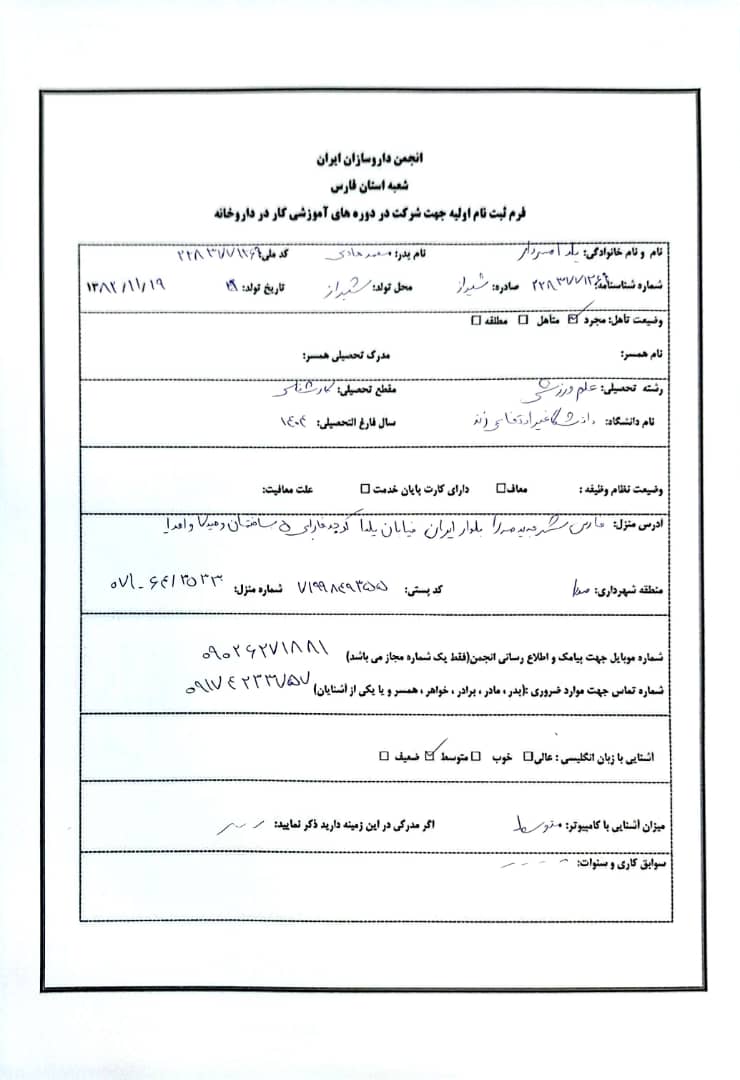 انجمن داروسازان ایران
شعبه استان فارس
فرم ثبت نام اولیه جهت شرکت در دوره های آموزشی کار در داروخانه
نام و نام خانوادگی: یلدا نام پدر: کد ملی:
شماره شناسنامه: صادره: شیراز محل تولد: شیراز تاریخ تولد: ۱۳۸۲/۱۱/۱۹
وضعیت تاهل: مجرد متاهل مطلقه
نام همسر: مدرک تحصیلی همسر:
رشته تحصیلی: علوم ورزشی مقطع تحصیلی: کارشناسی
نام دانشگاه: دانشگاه غیرانتفاعی زند سال فارغ التحصیلی: ۱۴۰۴
وضعیت نظام وظیفه : معاف دارای کارت پایان خدمت علت معافیت:
آدرس منزل: فارس شهر جدید صدرا بلوار ایران خیابان یلدا کوچه فارابی ۵ ساختمان
منطقه شهرداری: صدرا کد پستی: ۷۱۹۹۸۴۹۳۵۵ شماره منزل:
شماره موبایل جهت پیامک و اطلاع رسانی انجمن(فقط یک شماره مجاز می باشد) ۰۹۰۲۶۲۷۱۸۸۱
شماره تماس جهت موارد ضروری :(پدر ، مادر ، برادر ، خواهر ، همسر و یا یکی از آشنایان) ۰۹۱۷۴۲۳۳۷۵۷
آشنایی با زبان انگلیسی : عالی خوب متوسط ضعیف
میزان آشنایی با کامپیوتر: متوسط اگر مدرکی در این زمینه دارید ذکر نمایید:
سوابق کاری و سنوات: